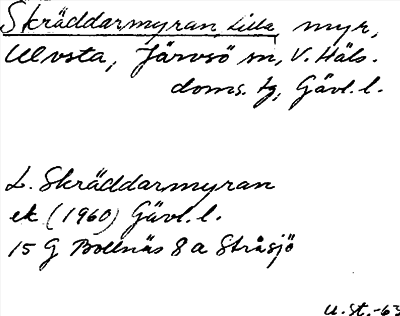 Skräddarmyran, Lilla, myr,
Ulvsta, Järvsö sn, V. Häls.
doms. tg, Gävl. l.
L. Skräddarmyran
ek (1960) Gävl. l.
15 G Bollnäs 8 a Stråsjö
U. St. -63